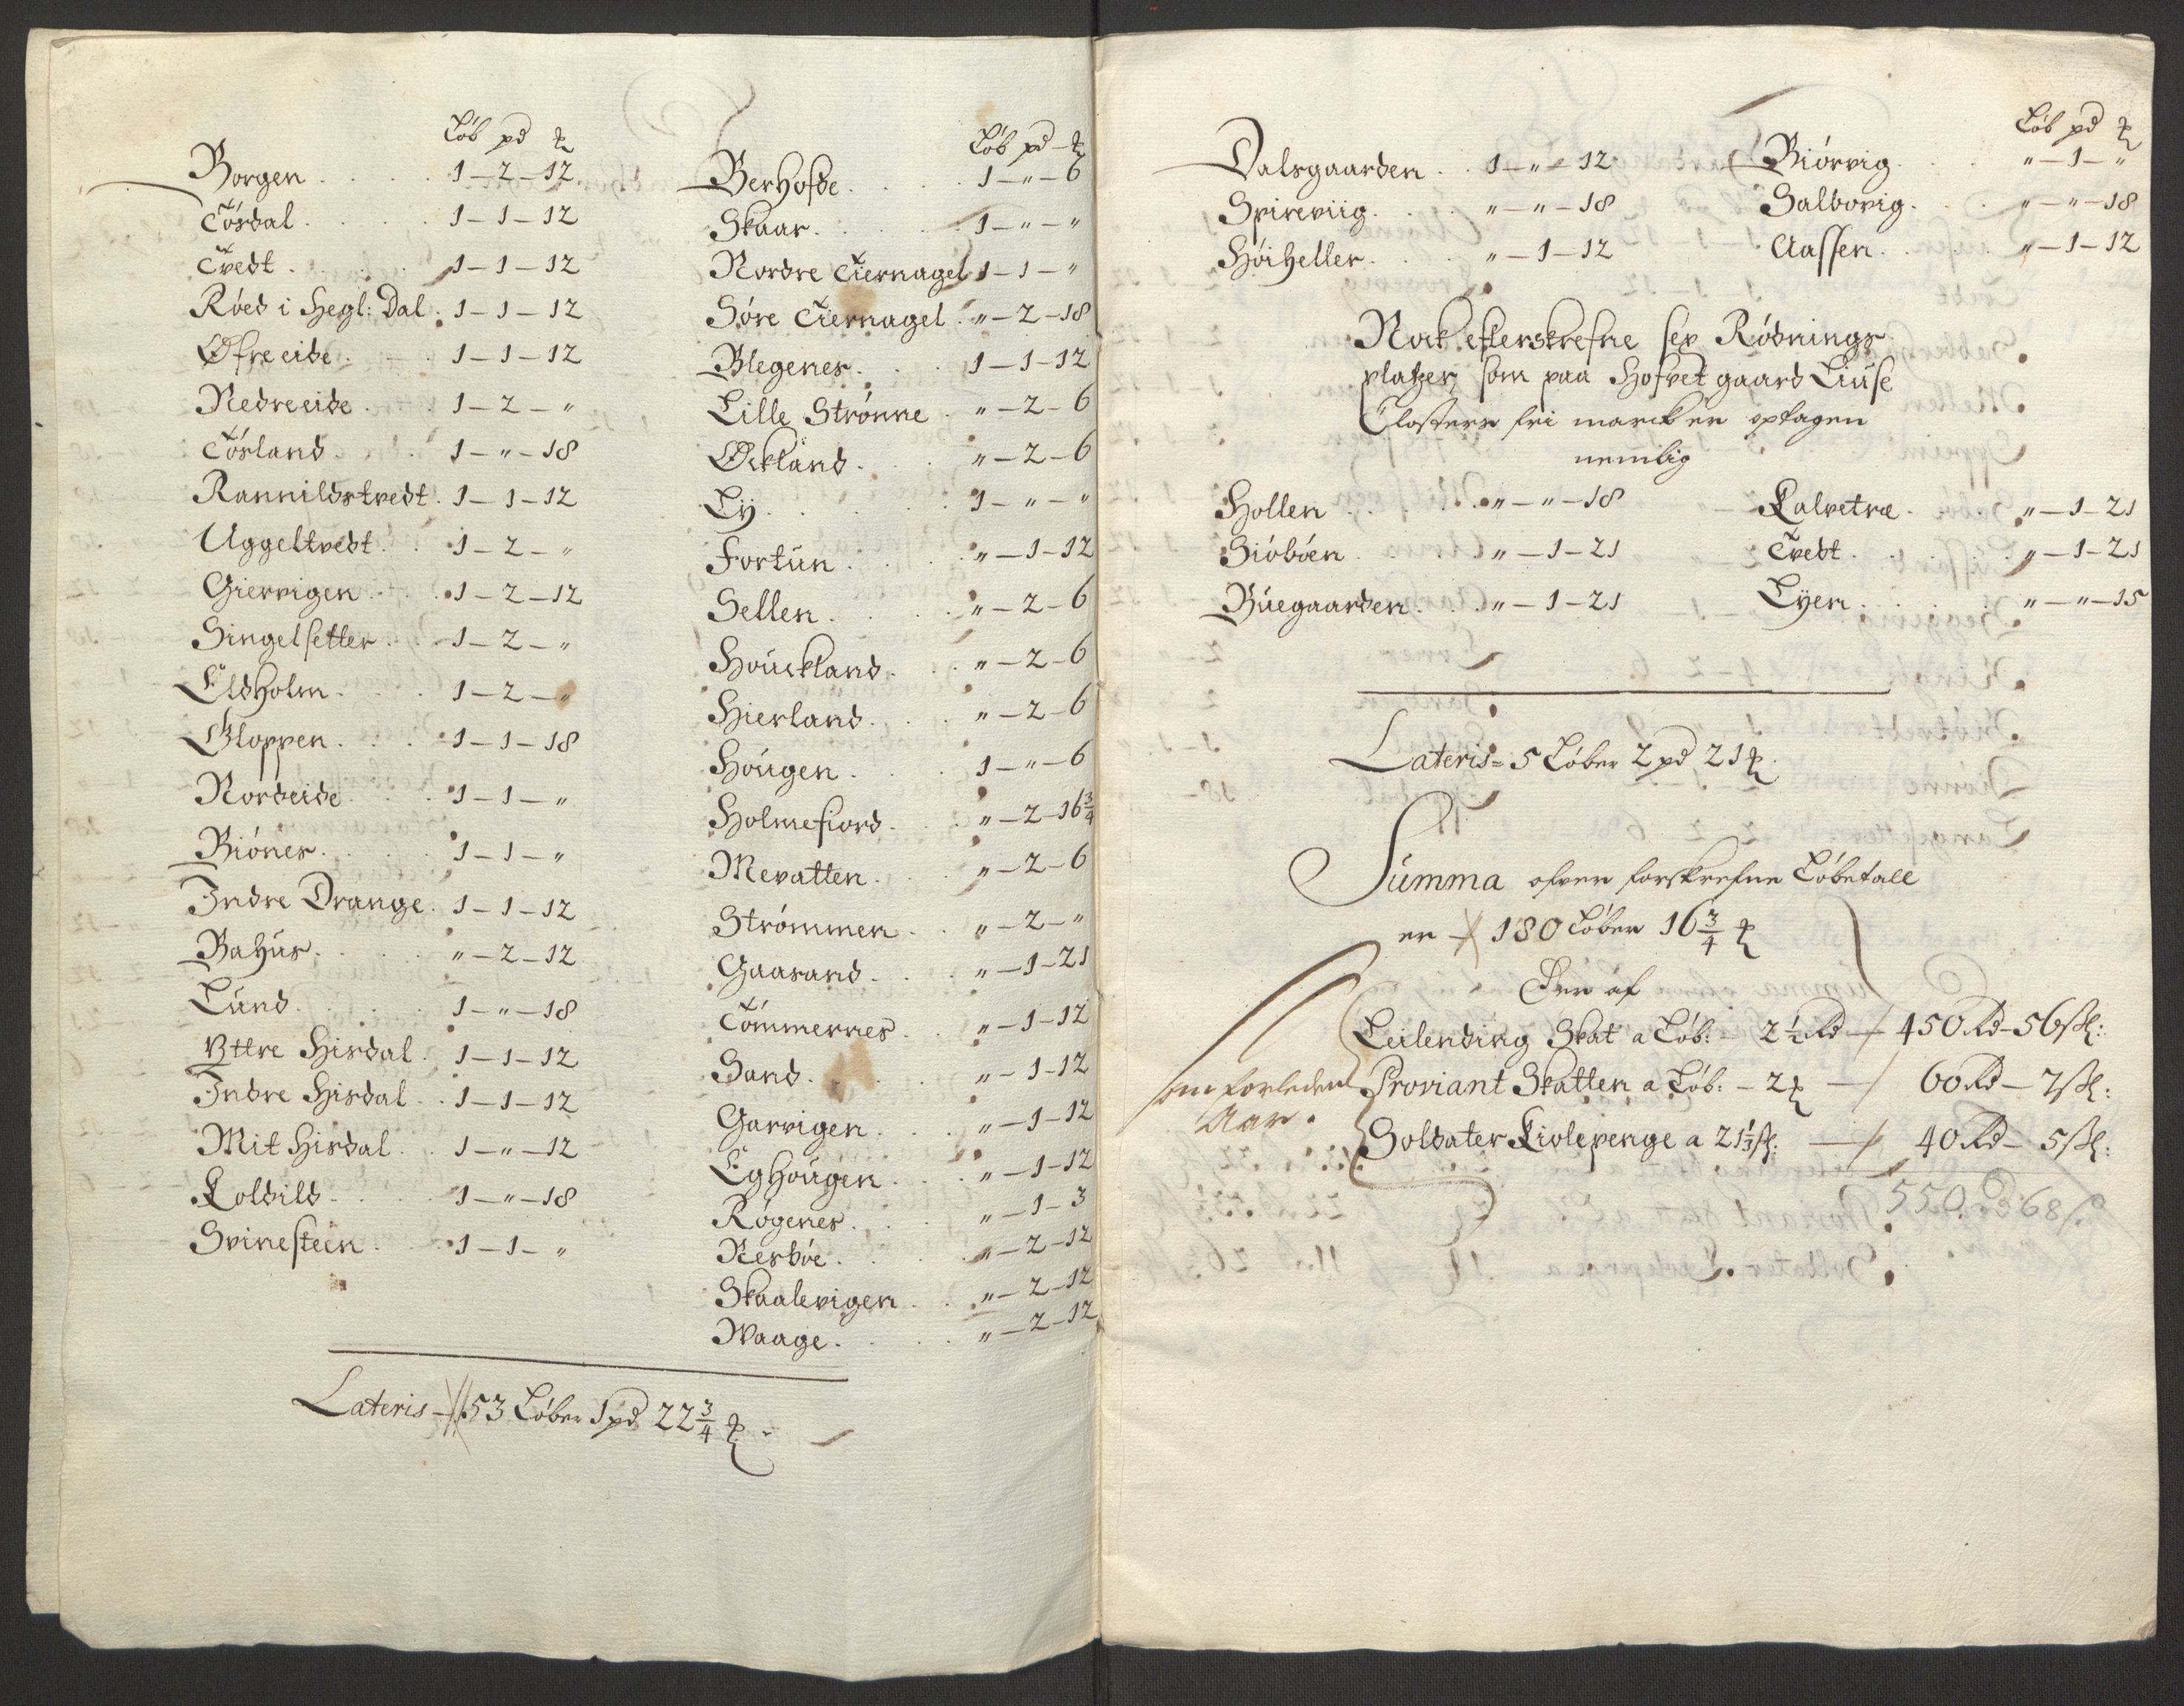 Løb pd ℔
Borgen . . . . 1 – 2 – 12
Tösdal . . . . 1 – 1 – 12
Tvedt . . . . 1 – 1 – 12
Röed i Hegl: Dal . 1 – 1 – 12
Øfre eide . . . 1 – 1 – 12
Nedre eide . . . 1 – 2 – "
Tösland . . . 1 – " – 18
Rannildstvedt . 1 – 1 – 12
Uggeltvedt . . 1 – 2 – "
Giervigen . . 1 – 2 – 12
Singelsetter . . 1 – 2 – "
Eldholm . . . 1 – 2 – "
Gloppen . . . 1 – 1 – 18
Nordeide . . . 1 – 1 – "
Biönes . . . . 1 – 1 – "
Indre Drange . 1 – 1 – 12
Bahüs . . . . " – 2 – 12
Lünd . . . . 1 – " – 18
Yttre Hisdal . 1 – 1 – 12
Indre Hisdal . . 1 – 1 – 12
Mit Hisdal . . 1 – " – 12
Koldild . . . . 1 – " – 18
Svinesteen . . . 1 – 1 – "
Løb pd – ℔
Berhofde . . . . 1 – " – 6
Skaar . . . . 1 – " – "
Nordre Tiernagel 1 – 1 – "
Söre Tiernagel . " – 2 – 18
Blegenes . . . 1 – 1 – 12
Lille Strönne . " – 2 – 6
Øckland . . . " – 2 – 6
Ly . . . . . 1 – " – "
Fortün . . . . " – 1 – 12
Sellen . . . . " – 2 – 6
Houckland . . . " – 2 – 6
Hierland . . . " – 2 – 6
Höugen . . . 1 – " – 6
Holmefiord . . . " – 2 – 16¾
Mevatten . . . " – 2 – 6
Strömmen . . " – 2 – "
Gaasand . . . " – 1 – 21
Tömmernes . . " – 1 – 12
Sand . . . . " – 1 – 12
Garvigen . . . " – 1 – 12
Eghöugen . . . " – 1 – 12
Rögenes . . . " – 1 – 3
Resböe . . . . " – 2 – 12
Skaalevigen . . " – 2 – 12
Waage . . . . " – 2 – 12
Lateris – 53 Löber 1 pd 22¾ ℔
Løb pd ℔
Dalsgaarden . . 1 – " – 12 Biörvig . . . " – 1 – "
Spireviig . . . " – " – 18 Salbovig . . . " – " – 18
Höiheller . . . " – 1 – 12 Aassen . . . " – 1 – 12
Nock efterskrefne sex Rödnings
platzer, som paa Hofvet gaard Liuse
Closters fri marcker optagen
nemblig
Hollen . . . . " – " – 18 Kalvetræ . . " – 1 – 21
Siöböen . . . " – 1 – 21 Tvedt . . . " – 1 – 21
Büegaarden . . . " – 1 – 21 Lyen . . . . " – " – 15
Lateris = 5 Löber 2 pd 21 ℔
Summa ofven forskrefne Löbetall
er 180 Löber 16¾ ℔
Der af
Leilending Skat a Löb: – 2½ Rd – 450 Rd – 56 sk:
Proviant Skatten a Löb: – 2 ℔ – 60 Rd – 7 sk:
Soldater Kiolepenge a 21⅓ sk: – 40 Rd – 5 sk:
som forleden
Aar.
550 Rd 68 s